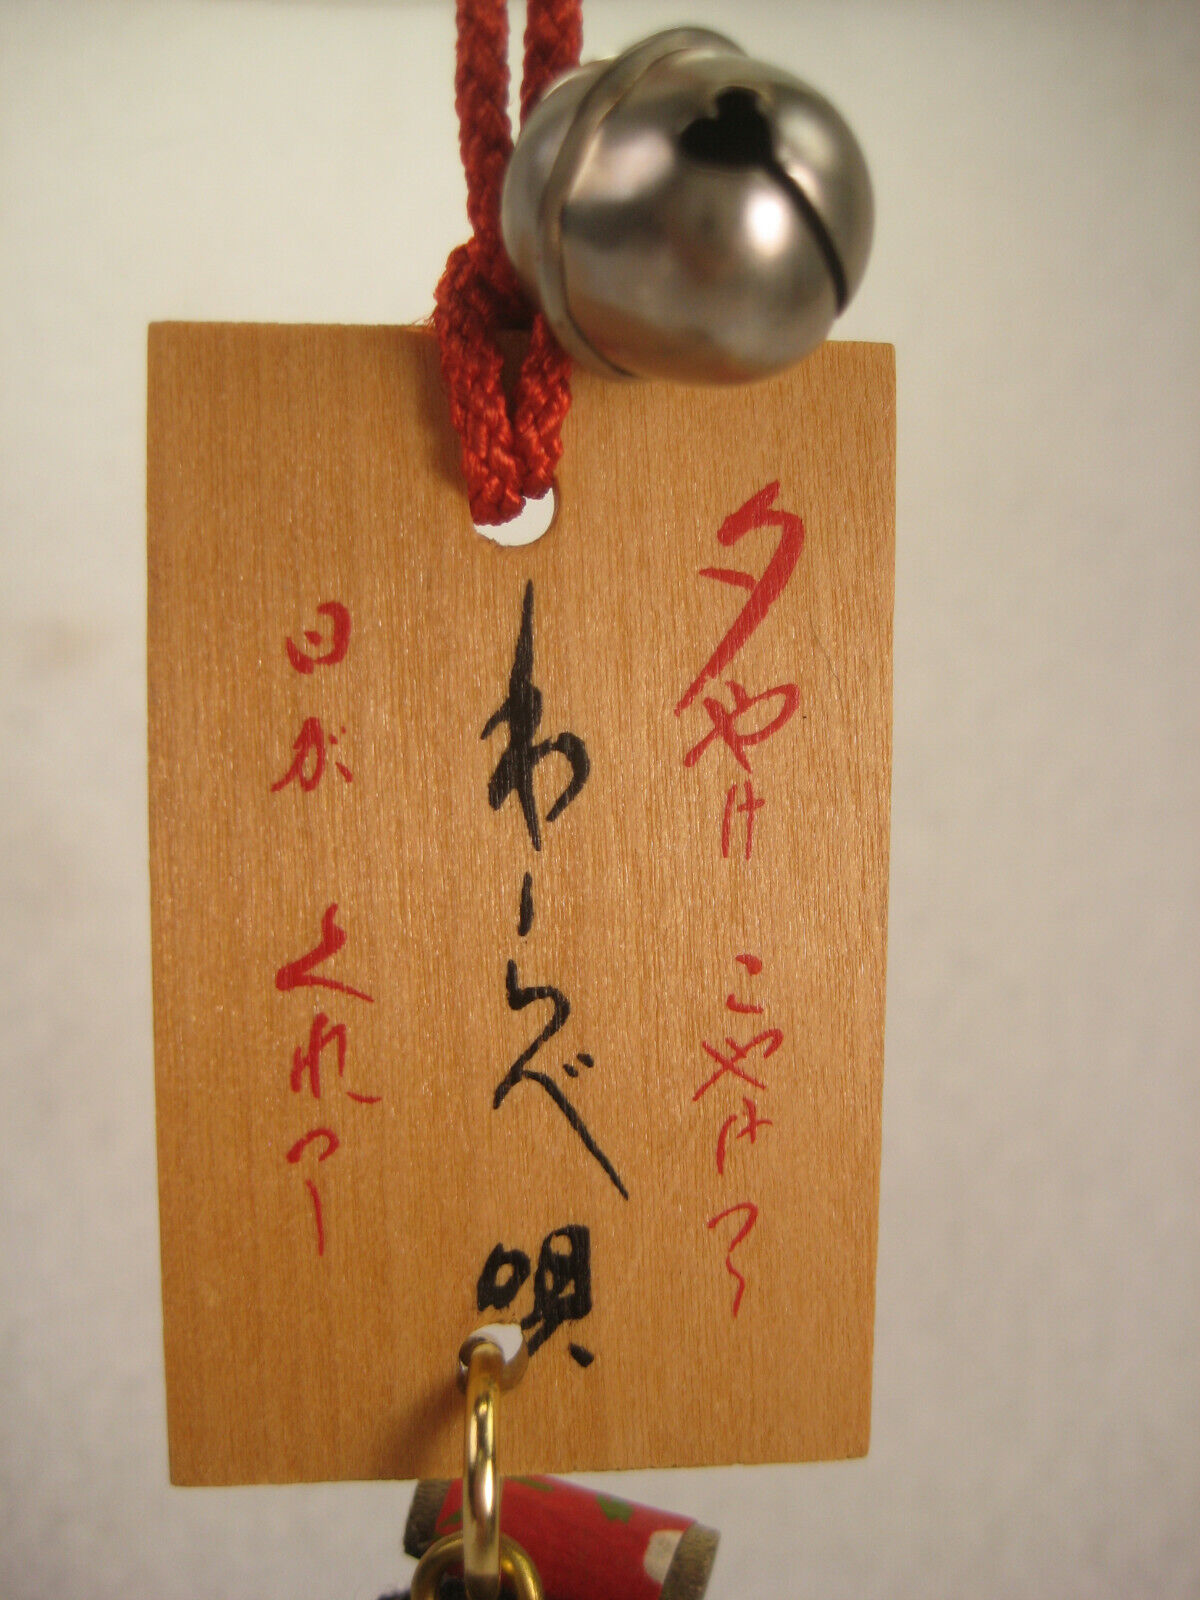 夕やけ こやけっ〜
わーらべ唄
日が くれっー